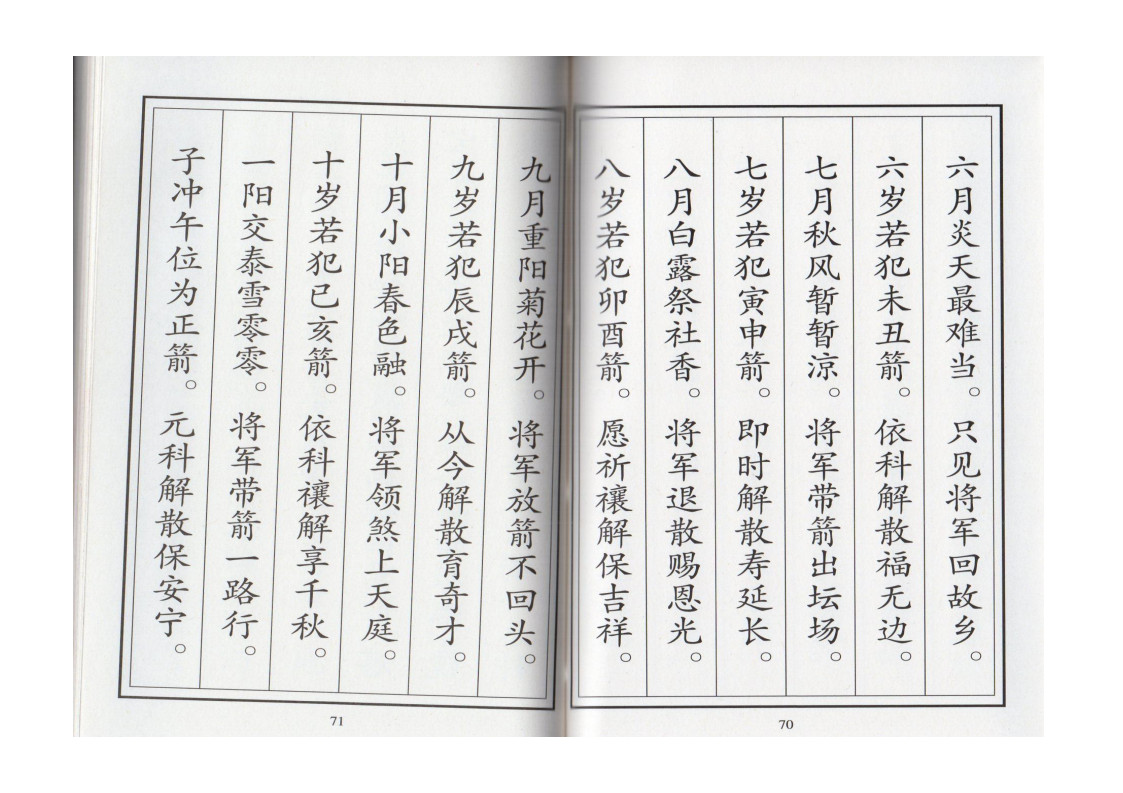 六月炎天最难当。只见将军回故乡。
六岁若犯未丑箭。依科解散福无边。
七月秋风暂暂凉。将军带箭出坛场。
七岁若犯寅申箭。即时解散寿延长。
八月白露祭社香。将军退散赐恩光。
八岁若犯卯酉箭。愿祈禳解保吉祥。
70
九月重阳菊花开。将军放箭不回头。
九岁若犯辰戌箭。从今解散育奇才。
十月小阳春色融。将军领煞上天庭。
十岁若犯已亥箭。依科禳解享千秋。
一阳交泰雪零零。将军带箭一路行。
子冲午位为正箭。元科解散保安宁。
71